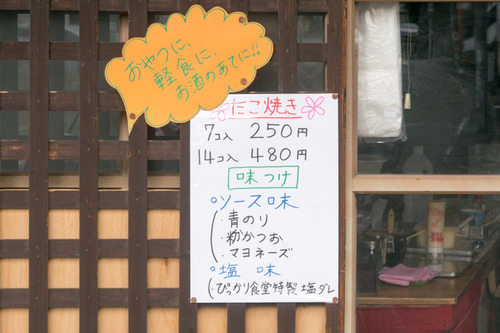 おやつに、
軽食に、
お酒のあてに!!
たこ焼き
7コ入 250円
14コ入 480円
味つけ
ソース味
・青のり
・粉かつお
・マヨネーズ
塩味
・ぴっかり食堂特製塩ダレ